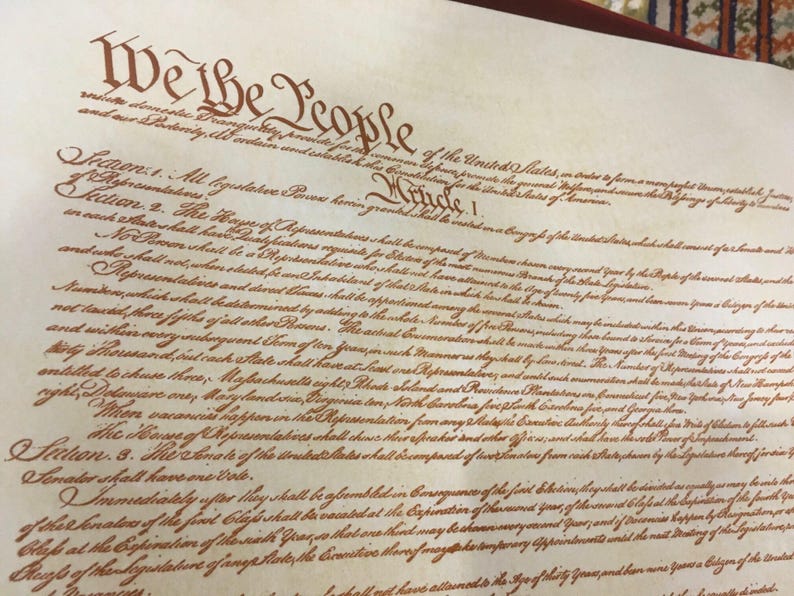 We the People of the United States, in order to form a more perfect Union, establish Justice,
insure domestic Tranquility, provide for the common defence, promote the general Welfare, and secure the Blessings of Liberty to ourselves
and our Posterity, do ordain and establish this Constitution for the United States of America.
Article. I.
Section. 1. All legislative Powers herein granted shall be vested in a Congress of the United States, which shall consist of a Senate and
of Representatives.
Section. 2. The House of Representatives shall be composed of Members chosen every second Year by the People of the several States, and the
in each State shall have Qualifications requisite for Electors of the most numerous Branch of the State Legislature.
No Person shall be a Representative who shall not have attained to the Age of twenty five Years, and been seven Years a Citizen of the
and who shall not, when elected, be an Inhabitant of that State in which he shall be chosen.
Representatives and direct Taxes shall be apportioned among the several States which may be included within this Union, according to their
Numbers, which shall be determined by adding to the whole Number of free Persons, including those bound to Service for a Term of Years, and
not taxed, three fifths of all other Persons. The actual Enumeration shall be made within three Years after the first Meeting of the Congress of the
and within every subsequent Term of ten Years, in such Manner as they shall by Law direct. The Number of Representatives shall not
thirty Thousand, but each State shall have at Least one Representative; and until such enumeration shall be made, the State of New
entitled to chuse three, Massachusetts eight, Rhode Island and Providence Plantations one, Connecticut five, New York six, New Jersey four,
eight, Delaware one, Maryland six, Virginia ten, North Carolina five, South Carolina five, and Georgia three.
When vacancies happen in the Representation from any State, the Executive Authority thereof shall issue Writs of Election to fill such
The House of Representatives shall chuse their Speaker and other Officers; and shall have the sole Power of Impeachment.
Section. 3. The Senate of the United States shall be composed of two Senators from each State, chosen by the Legislature thereof, for six
Senator shall have one Vote.
Immediately after they shall be assembled in Consequence of the first Election, they shall be divided as equally as may be into
of the Senators of the first Class shall be vacated at the Expiration of the second Year, of the second Class at the Expiration of the fourth Year,
Class at the Expiration of the sixth Year, so that one third may be chosen every second Year; and if Vacancies happen by Resignation, or
Recess of the Legislature of any State, the Executive thereof may make temporary Appointments until the next Meeting of the Legislature,
shall not have attained to the Age of thirty Years, and been nine Years a Citizen of the United
equally divided.